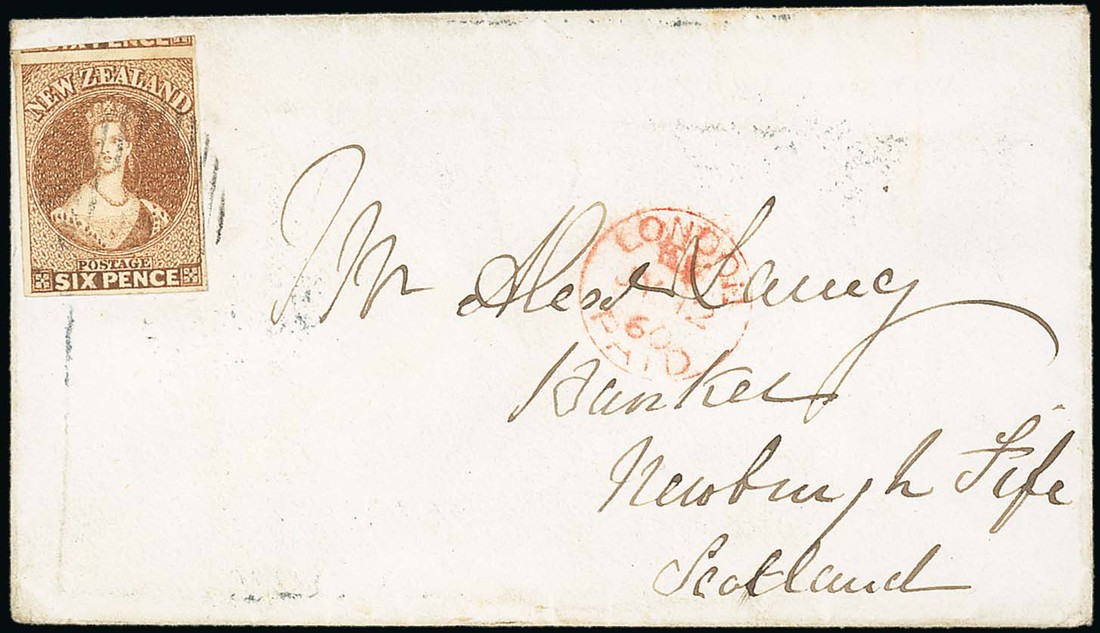 SIX PENCE
NEW ZEALAND
POSTAGE
SIX PENCE
LONDON
12
60
PAID
Mr Alexr Laing
Banker
Newburgh Fife
Scotland